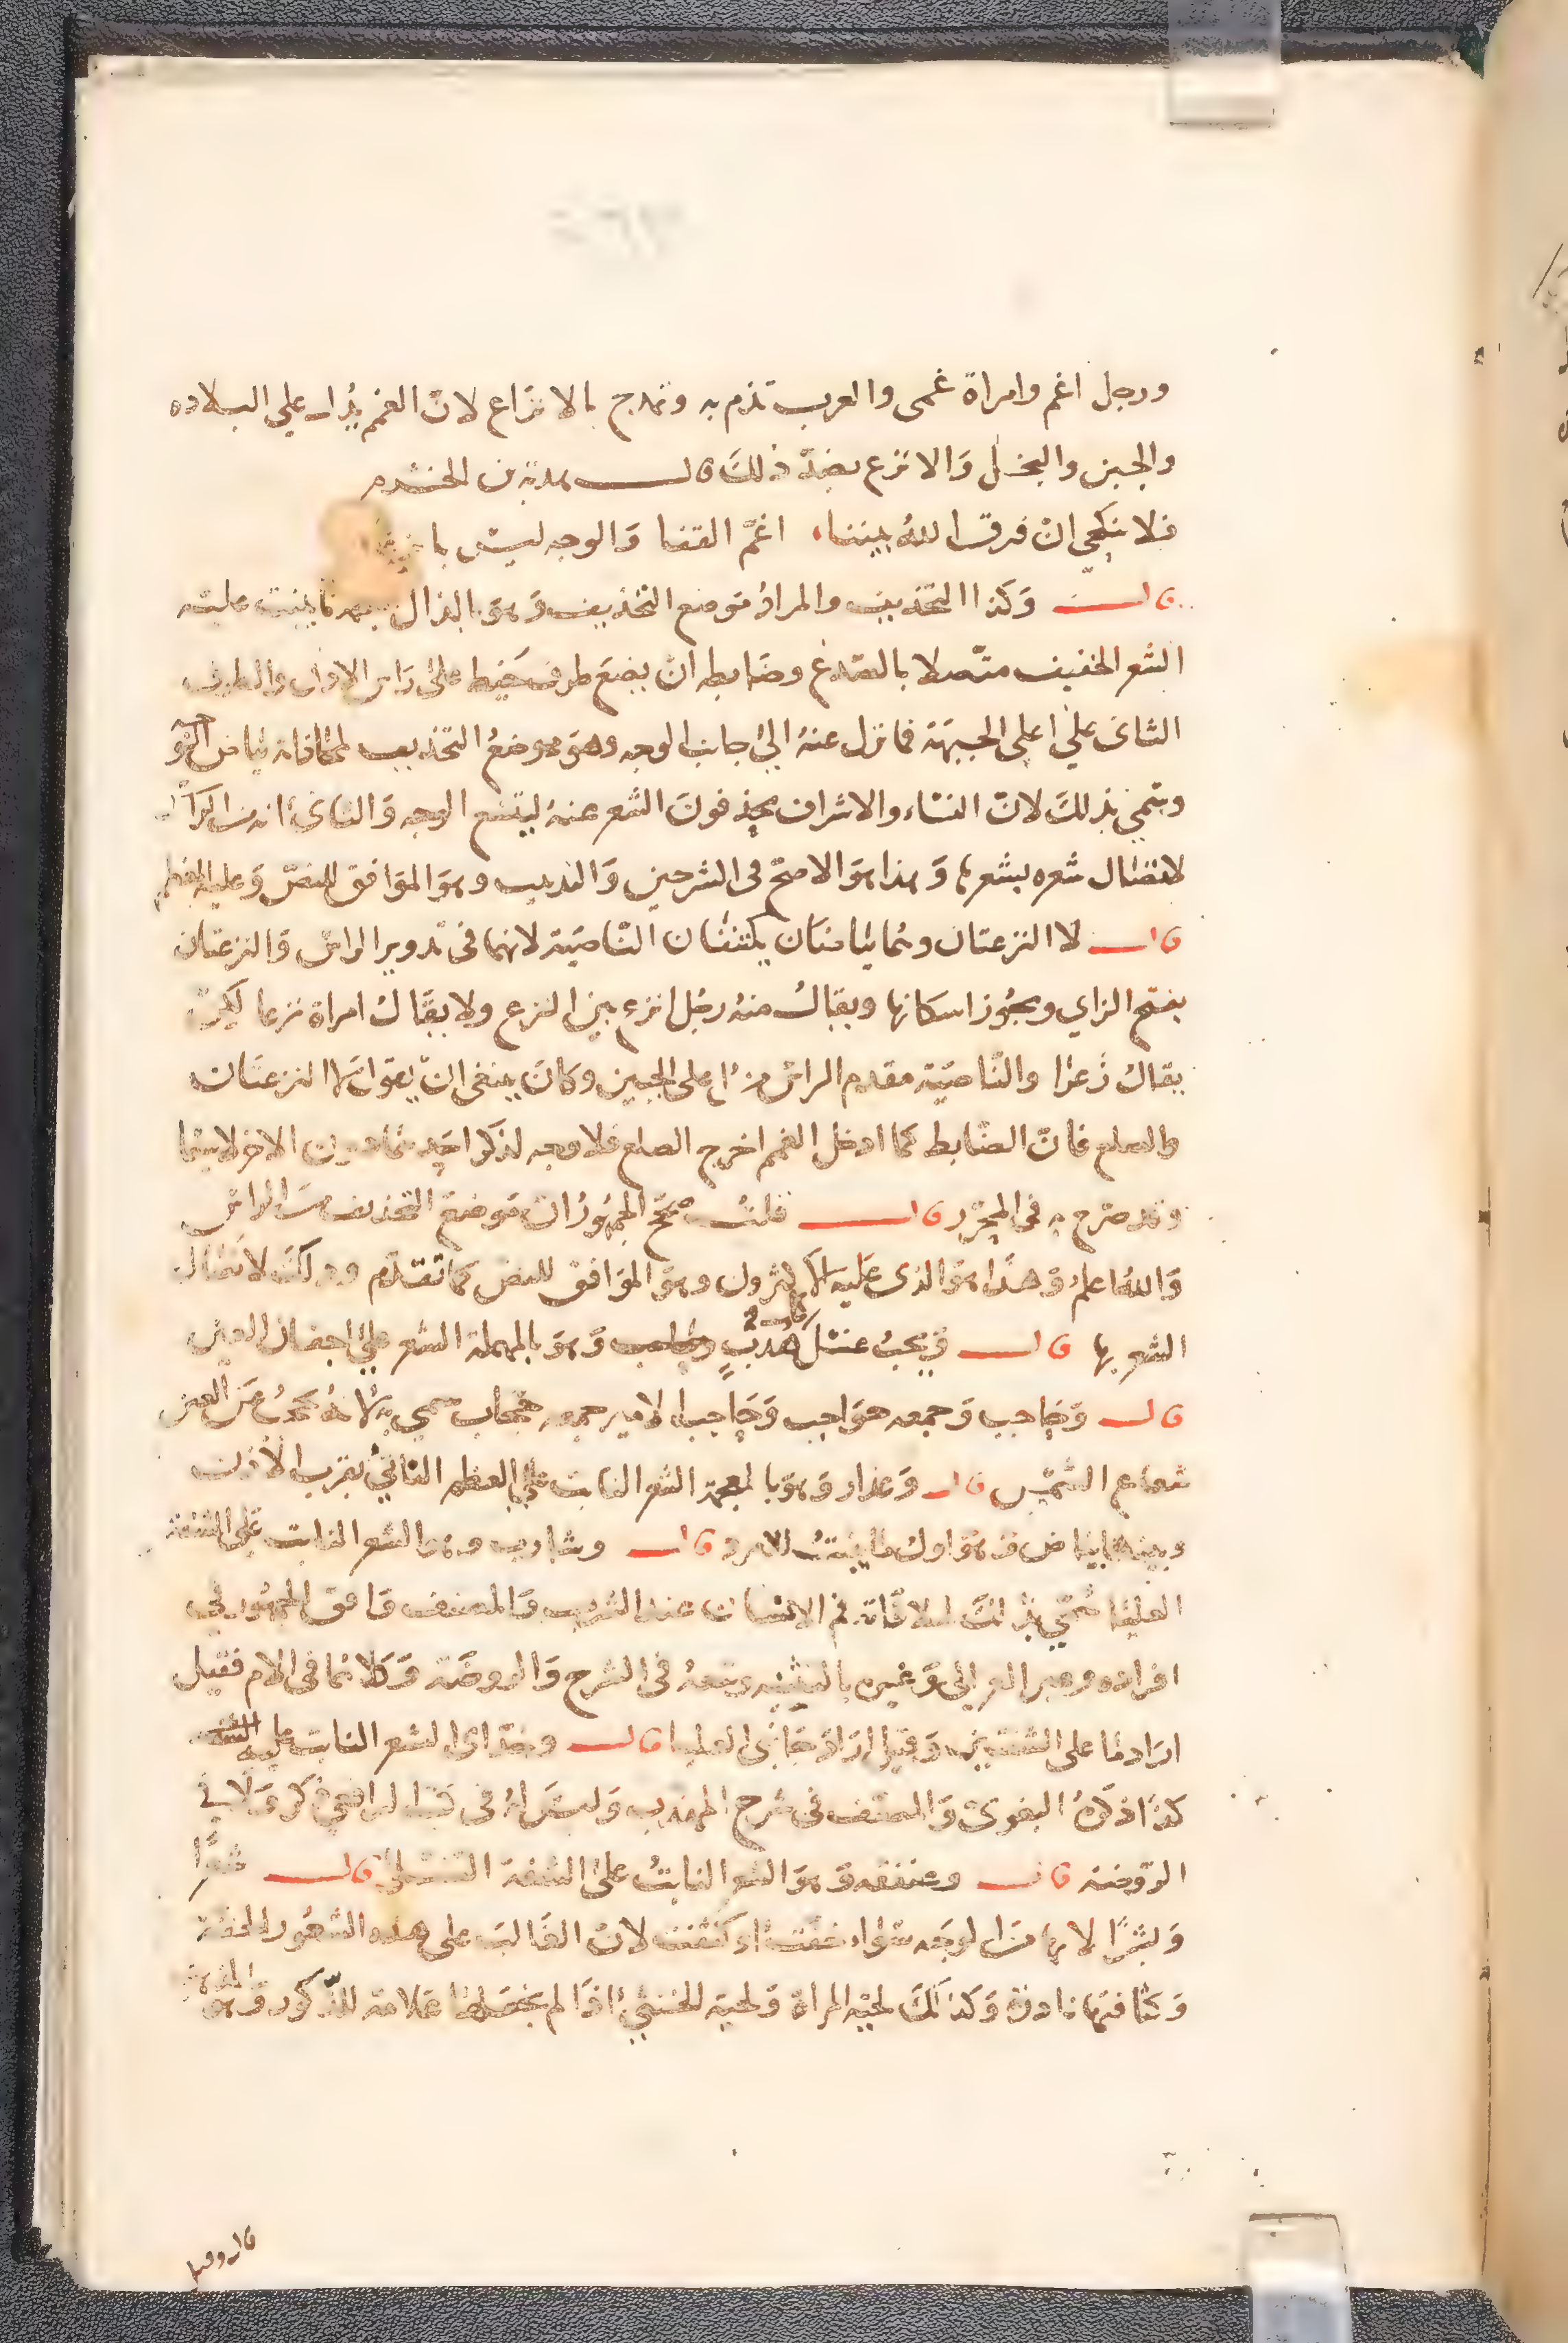 ورجل اغم وامراة غمى والعرب تذم به وتمدح بالانزاع لان الغمم يدل على البلاده
والجبن والبخل والانزع بضد ذلك قال هدبة بن الخشرم
فلا تنكحي ان فرق الله بيننا اغم القفا والوجه ليس بانزعا
قال وكذا التحذيف والمراد موضع التحذيف وهو بالذال ينبت عليه
الشعر الخفيف متصلا بالصدغ وضابطه ان يضع طرف خيط على راس الاذن والطرف
الثانى على اعلى الجبهة فما نزل عنه الى جانب الوجه وهو موضع التحذيف لمحاذاة بياض
وسمي بذلك لان النساء والاشراف يحذفون الشعر عنه ليتسع الوجه والثانى انه من الراس
لاتصال شعره بشعرها وهذا هو الاصح فى الشرحين والتذنيب وهو الموافق للنص وعليه
قال لا النزعتان وهما بياضان يكتنفان الناصية لانهما فى تدوير الراس والنزعتان
بفتح الزاي ويجوز اسكانها ويقال منه رجل انزع بين النزع ولا يقال امراة نزعا لكن
يقال زعرا والناصية مقدم الراس من اعلى الجبين وكان ينبغى ان يقول لا النزعتان
والصلع فان الضابط كما ادخل الغمم اخرج الصلع فلا وجه لذكر احدهما دون الاخر لاسيما
وقد صرح به فى المحرر قال قلت صحح الجمهور ان موضع التحذيف من الراس
والله اعلم وهذا هو الذى عليه الاكثرون وهو الموافق للنص كما تقدم وذلك لاتصال
الشعر بها قال ويجب غسل كل هدب وهو بالمهملة الشعر على اجفان العين
قال وحاجب وجمعه حواجب وحاجب الامير جمعه حجاب سمي به لانه يحجب عن العين
شعاع الشمس قال وعذار وهو بالمعجمة الشعر النابت على العظم الناتئ بقرب الاذن
وبينهما بياض وهو اول ما ينبت للامرد قال وشارب وهو الشعر النابت على الشفة
العليا سمي بذلك لملاقاته فم الانسان عند الشرب والمصنف وافق الجمهور في
افراده وعبر الغزالي وغيره بالتثنيه وتبعه فى الشرح والروضة وكلاهما فى الام فقيل
اراد ما على الشفتين وقيل اراد جانبى العليا قال وخد اى الشعر النابت عليه
كذا ذكره البغوى والمصنف فى شرح المهذب وليس له فى كتب الرافعي ذكر ولا في
الروضة قال وعنفقه وهو الشعر النابت على الشفة السفلى قال شعرا
وبشرا لانها من الوجه سواء خفت او كثفت لان الغالب على هذه الشعور الخفة
وكثافتها نادرة وكذلك لحية المراة ولحية الخنثى اذا لم نجعلها علامة للذكورة وهو
قال وقيل